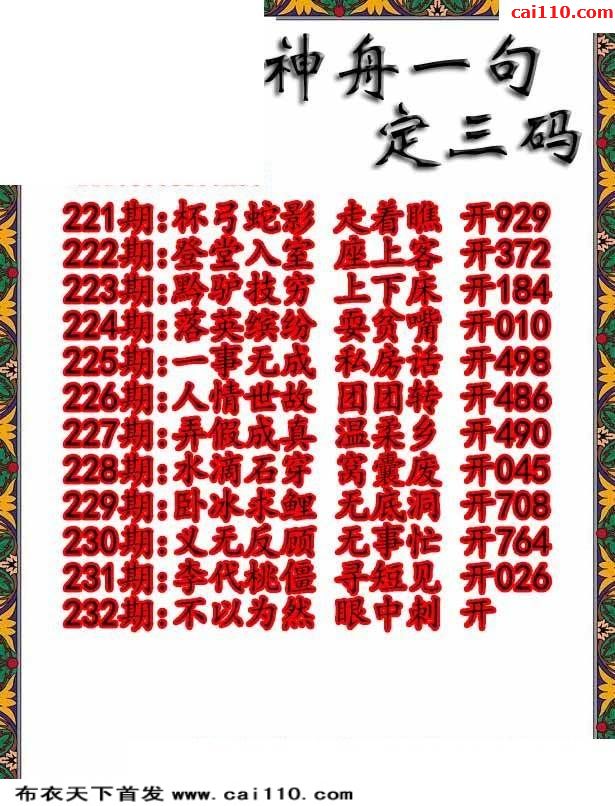 cai110.com
神舟一句
定三码
221期:杯弓蛇影 走着瞧 开929
222期:登堂入室 座上客 开372
223期:黔驴技穷 上下床 开184
224期:落英缤纷 耍贫嘴 开010
225期:一事无成 私房话 开498
226期:人情世故 团团转 开486
227期:弄假成真 温柔乡 开490
228期:水滴石穿 窝囊废 开045
229期:卧冰求鲤 无底洞 开708
230期:义无反顾 无事忙 开764
231期:李代桃僵 寻短见 开026
232期:不以为然 眼中刺 开
布衣天下首发 www.cai110.com